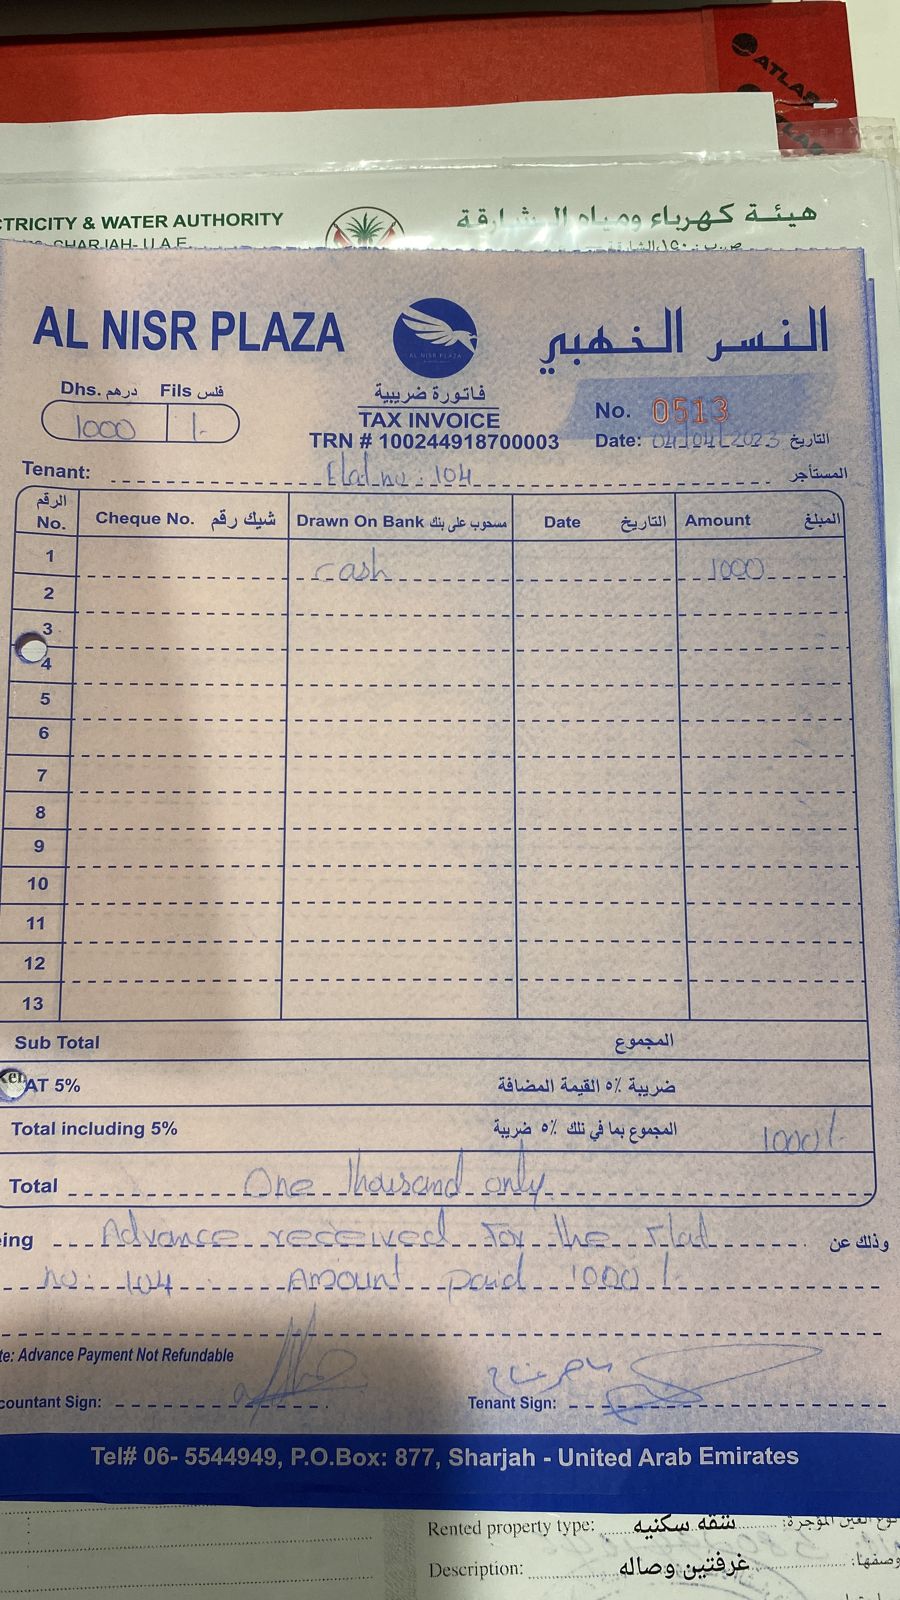 ATLAS
CTRICITY & WATER AUTHORITY
هيئة كهرباء ومياه الشارقة
SHARJAH- U.A.E
AL NISR PLAZA
AL NISR PLAZA
النسر الذهبي
Dhs. درهم Fils فلس
1000 /-
فاتورة ضريبية
TAX INVOICE
TRN # 100244918700003
No. 0513
Date: 04/04/2023 التاريخ
Tenant: Flat no: 104 المستأجر
الرقم No. Cheque No. شيك رقم Drawn On Bank مسحوب على بنك Date التاريخ Amount المبلغ
1 cash 1000
2
3
4
5
6
7
8
9
10
11
12
13
Sub Total المجموع
AT 5% ضريبة ٥% القيمة المضافة
Total including 5% المجموع بما في تلك ٥% ضريبة 1000/-
Total One thousand only
eing Advance received for the Flat وذلك عن
no: 104 Amount paid 1000/-
te: Advance Payment Not Refundable
countant Sign: Tenant Sign:
Tel# 06- 5544949, P.O.Box: 877, Sharjah - United Arab Emirates
Rented property type: شقه سكنيه نوع العين المؤجرة:
Description: غرفتين وصاله وصفها: